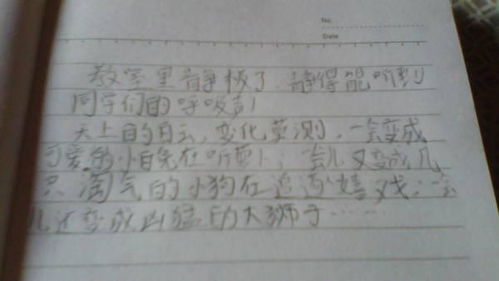 No.
Date
教室里静极了,静得能听到
同学们的呼吸声!
天上的白云,变化莫测,一会变成
可爱的小白兔在吃萝卜,一会儿又变成几
只淘气的小狗在追逐嬉戏,一会
儿还变成凶猛的大狮子……